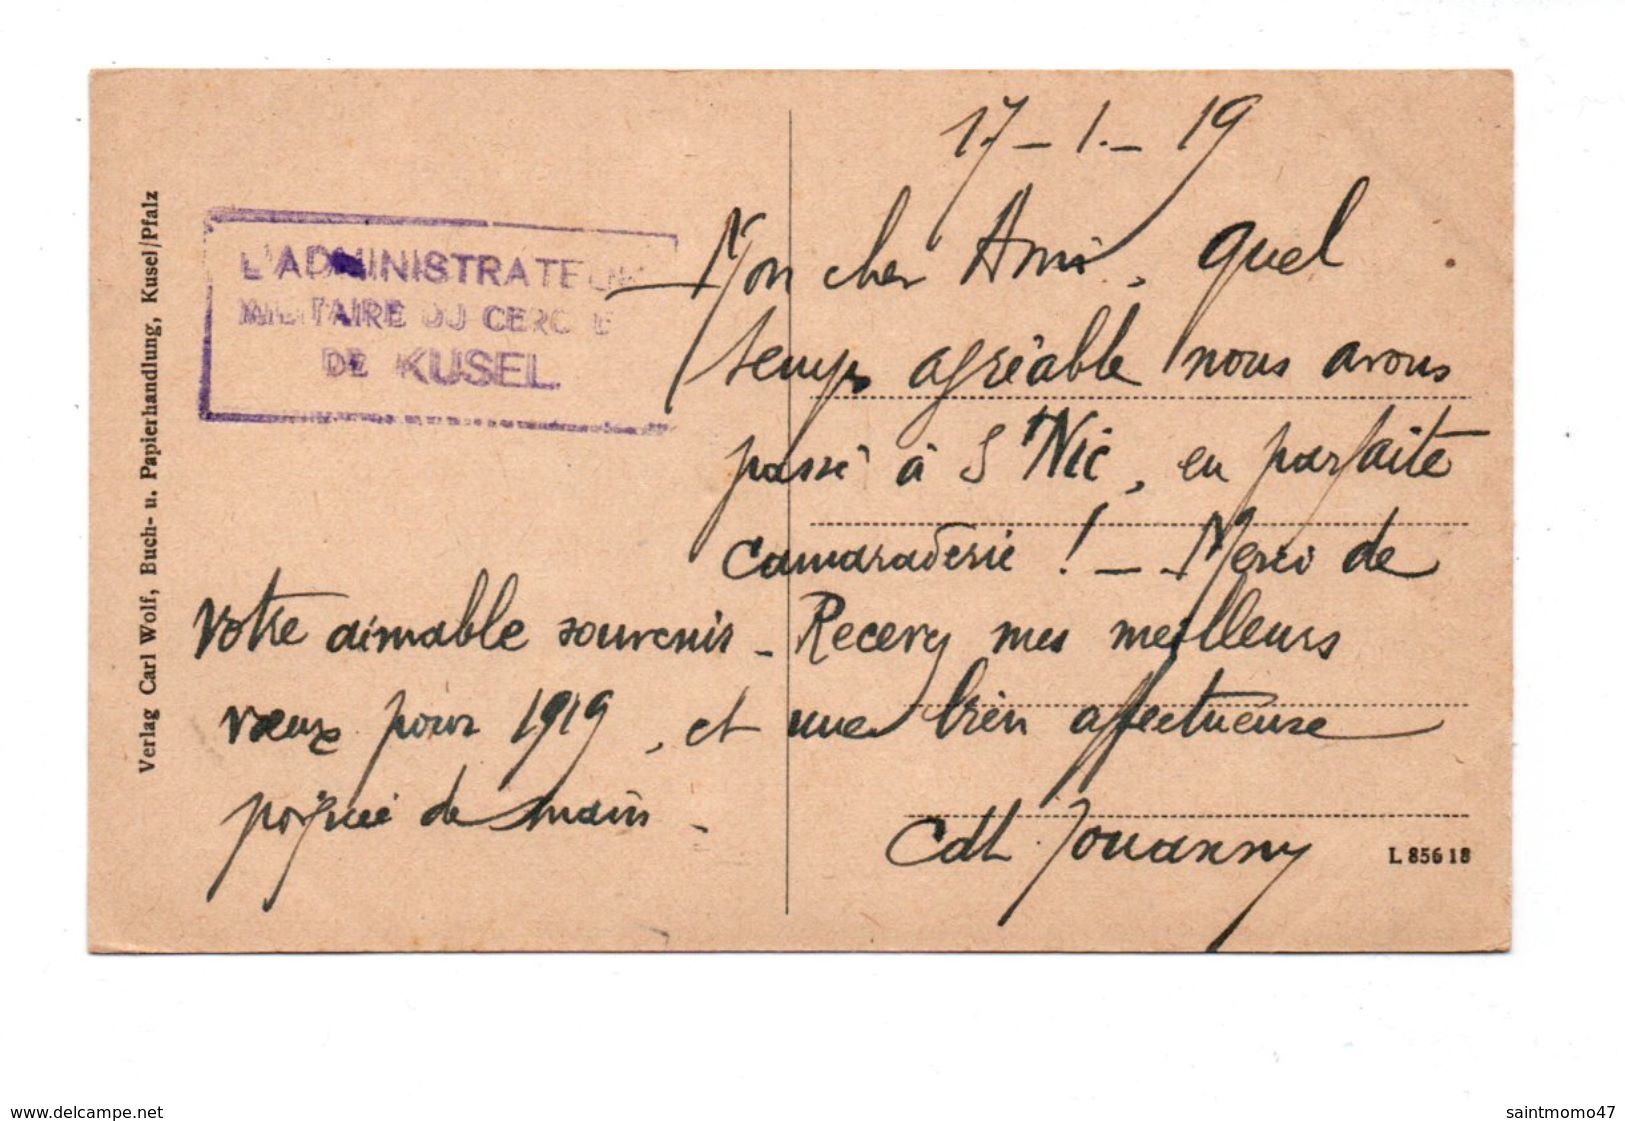 17-1.-19
L'ADMINISTRATEUR
MILITAIRE DU CERCLE
DE KUSEL
Mon cher Ami, quel
temps agréable nous avons
passé à S Nic, en parfaite
camaraderie ! - Merci de
votre aimable souvenir - Recevez mes meilleurs
vœux pour 1919, et une bien affectueuse
poignée de main -
Cdt Jouanny
L 856 18
Verlag Carl Wolf, Buch- u. Papierhandlung, Kusel/Pfalz
www.delcampe.net
saintmomo47